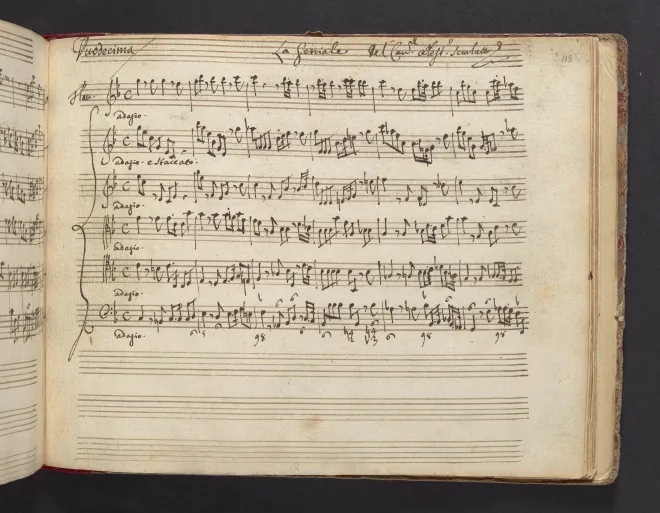 Duodecima La Geniale Del Cavr. Aless. Scarlatti 118
Flau.
adagio.
adagio e staccato.
adagio.
adagio.
adagio.
adagio.